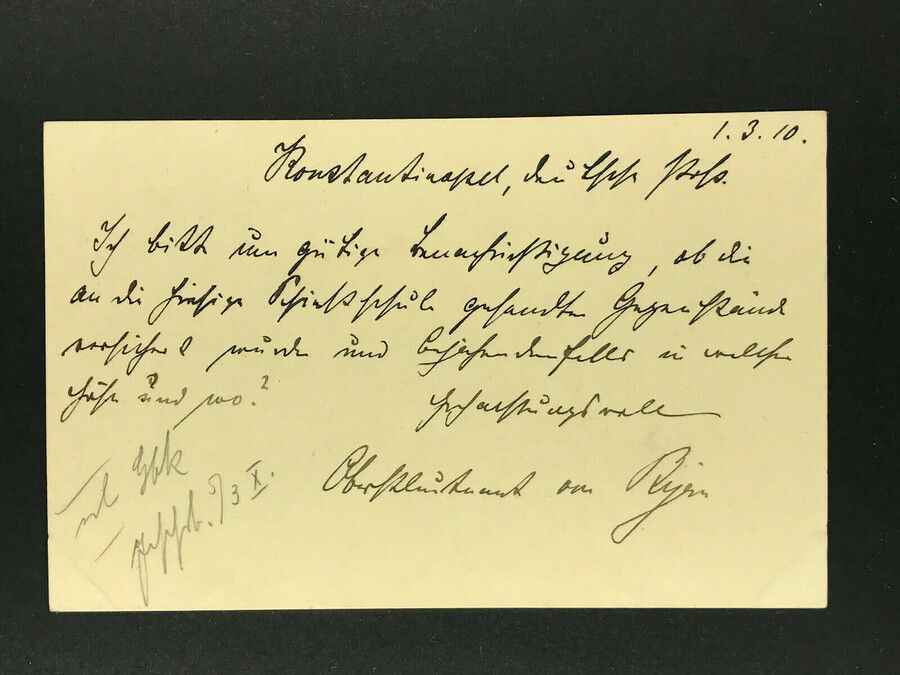 1. 3. 10.
Konstantinopel, deutsche Post.
Ich bitte um gütige Benachrichtigung, ob die
an die hiesige Schießschule gesandten Gegenstände
versichert wurden und bejahendenfalls in welcher
Höhe und wo?
Hochachtungsvoll
Oberstleutnant von
5/3 X.